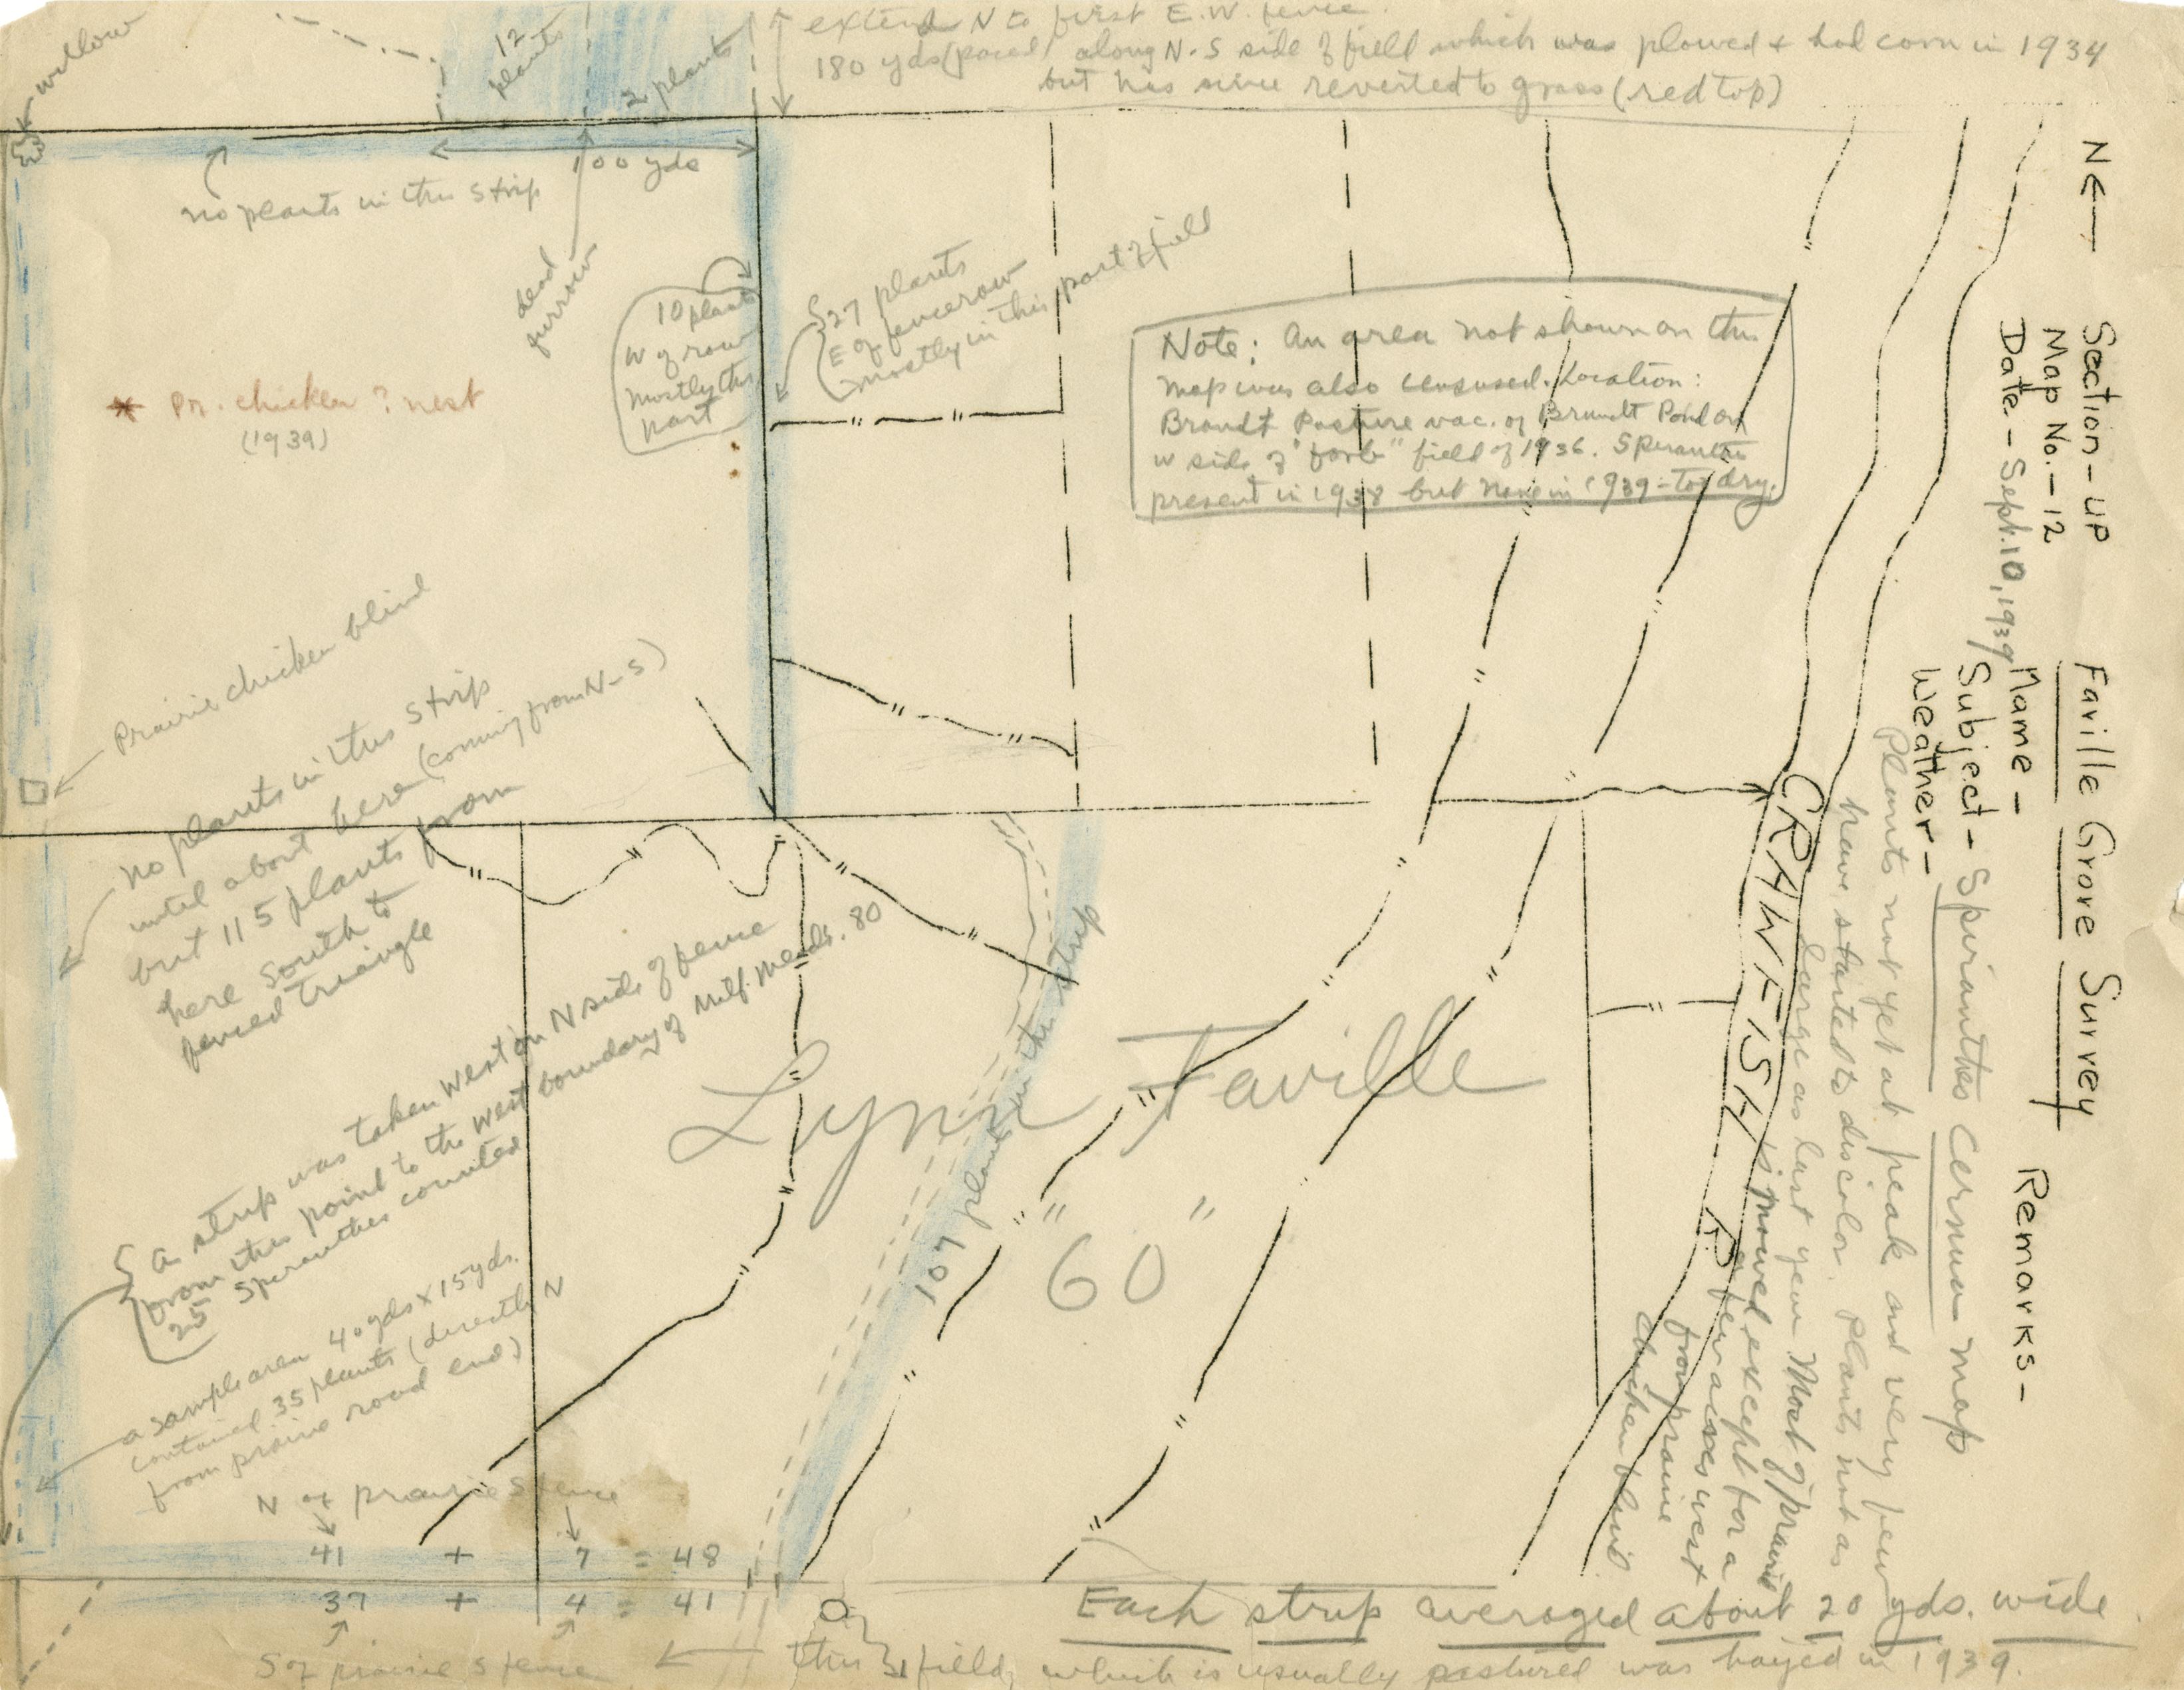 extend N to first E.W. fence.
180 yds (paced) along N-S side of field which was plowed & had corn in 1934
but has since reverted to grass (red top)
willow
12
plants
2 plants
100 yds
no plants in this strip
dead
furrow
10 plants
W of row
Mostly this
part
27 plants
E of fencerow
mostly in this part of field
* Pr. chicken ? nest
(1939)
Note: An area not shown on this
map was also censused. Location:
Brandt Pasture vac. of Brandt Pond on
W side of "forb" field of 1936. Spiranthes
present in 1938 but none in 1939 - too dry.
Prairie chicken blind
no plants in this strip
until about here (coming from N-S)
but 115 plants from
here South to
fenced triangle
a strip was taken West on N side of fence
from this point to the West boundary of Milf. Meads. 80
25 Spiranthes counted
a sample area 40 yds x 15 yds.
contained 35 plants (directly N
from prairie road end)
N of prairie S fence
41 + 7 = 48
37 + 4 = 41
S of prairie S fence
← this field, which is usually pastured was hayed in 1939.
Each strip averaged about 20 yds. wide
107 plants in this strip
Lynn Faville
"60"
CRAWFISH R.
N←
Section-up
Map No.-12
Date.- Sept. 10, 1939
Faville Grove Survey
Name-
Subject- Spiranthes Cernua map
Weather-
Remarks-
Plants not yet at peak and very few
have started to discolor. Plants not as
large as last year. Most of prairie
is mowed except for a
few acres west
from prairie
chicken blind